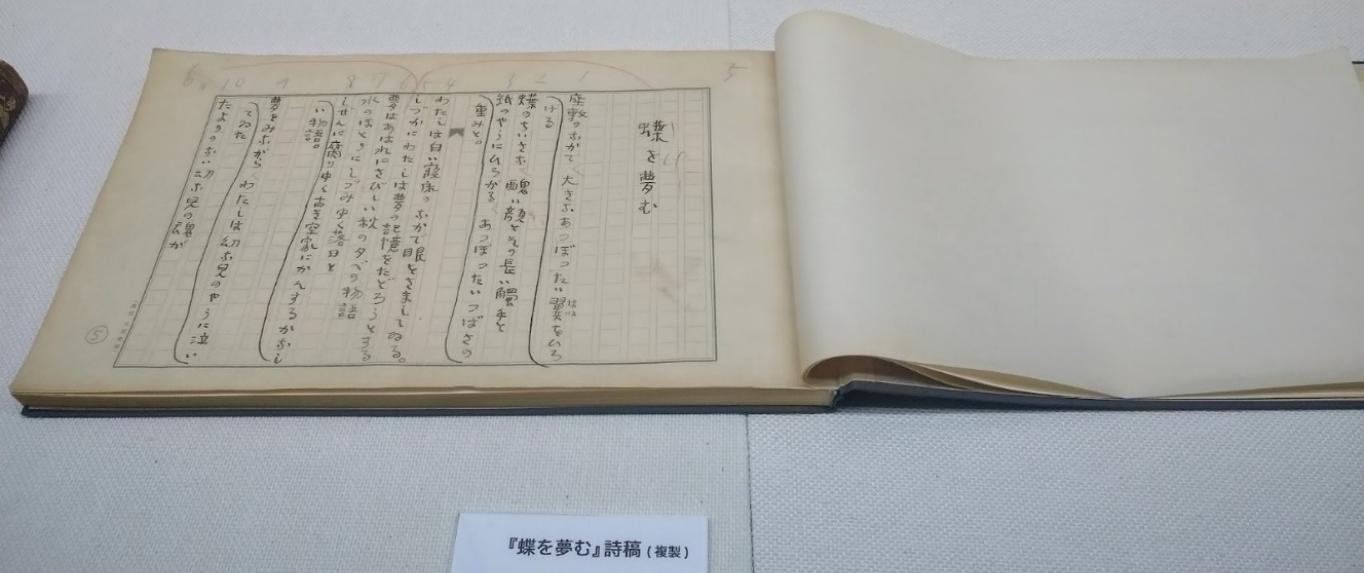 5
1 2 3 4 5 6 7 8 9 10
蝶を夢む
座敷のなかで 大きなあつぼつたい翼をひろ
はね
げる
蝶のちいさな 醜い顔とその長い觸手と
紙のやうにひろがる、あつぼつたいつばさの
重みと。
わたしは白い寢床のなかで眼をさましてゐる。
しづかにわたしは夢の記憶をたどろうとする
夢はあはれにさびしい秋の夕べの物語
水のほとりにしづみゆく落日と
しぜんに腐りゆく古き空家にかんするかなし
い物語。
夢をみながら わたしは幼な兒のやうに泣い
てゐた
たよりのない幼な兒の魂が
5
『蝶を夢む』詩稿(複製)